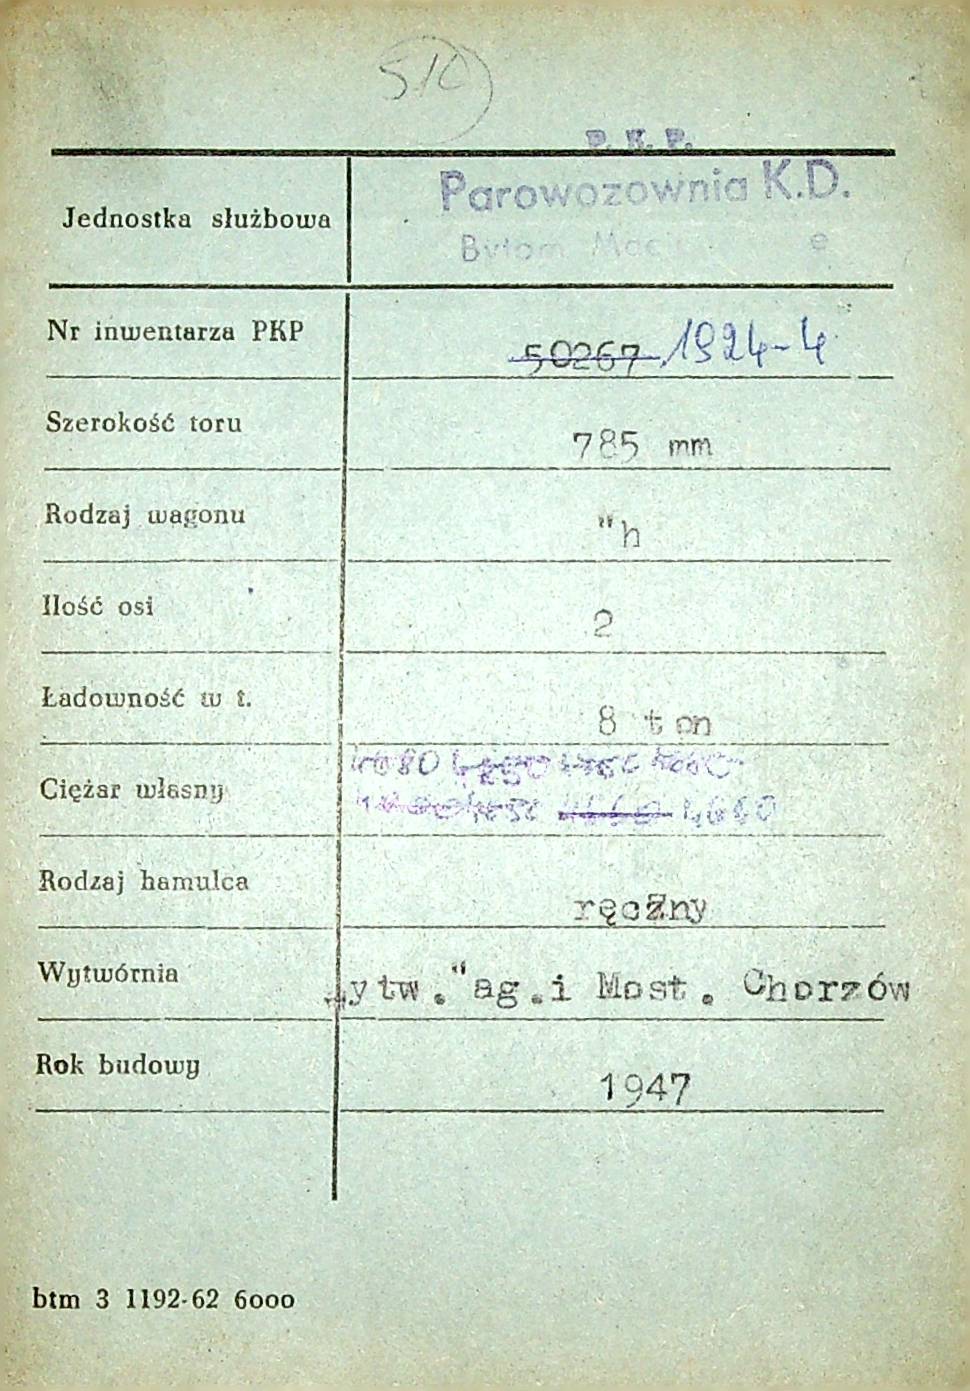 P. K. P.
Parowozownia K.D.
Jednostka służbowa
Bytom
Nr inwentarza PKP
50267 1924-4
Szerokość toru
785 mm
Rodzaj wagonu
"h
Ilość osi
2
Ładowność w t.
8 ton
Ciężar własny
4660 4660
Rodzaj hamulca
ręczny
Wytwórnia
ytw."ag.i Most. Chorzów
Rok budowy
1947
btm 3 1192-62 6000